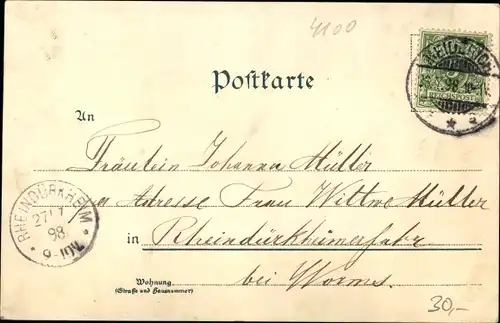 4100
REICHSPOST
98
Postkarte
An
Fräulein Johanna Müller
Adresse Frau Wittwe Müller
in Rheindürkheimerfahr
bei Worms.
RHEINDÜRKHEIM
27/1
98
9-10V.
Wohnung
(Straße und Hausnummer)
30,-